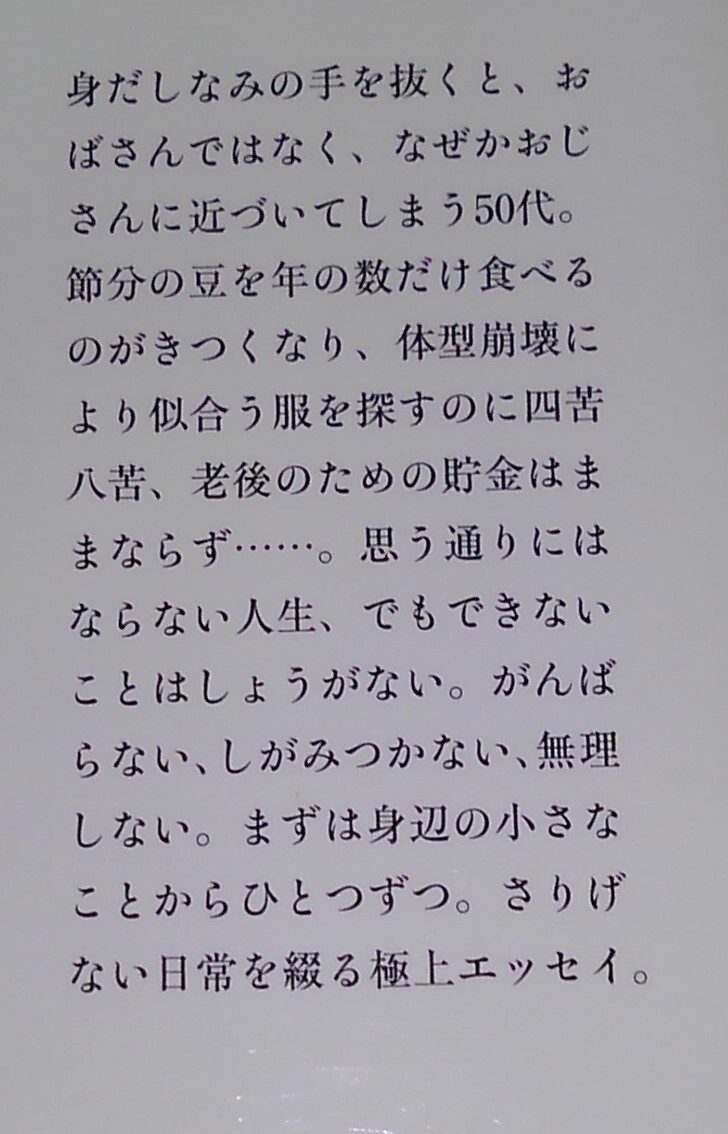 身だしなみの手を抜くと、お
ばさんではなく、なぜかおじ
さんに近づいてしまう50代。
節分の豆を年の数だけ食べる
のがきつくなり、体型崩壊に
より似合う服を探すのに四苦
八苦、老後のための貯金はま
まならず……。思う通りには
ならない人生、でもできない
ことはしょうがない。がんば
らない、しがみつかない、無理
しない。まずは身辺の小さな
ことからひとつずつ。さりげ
ない日常を綴る極上エッセイ。